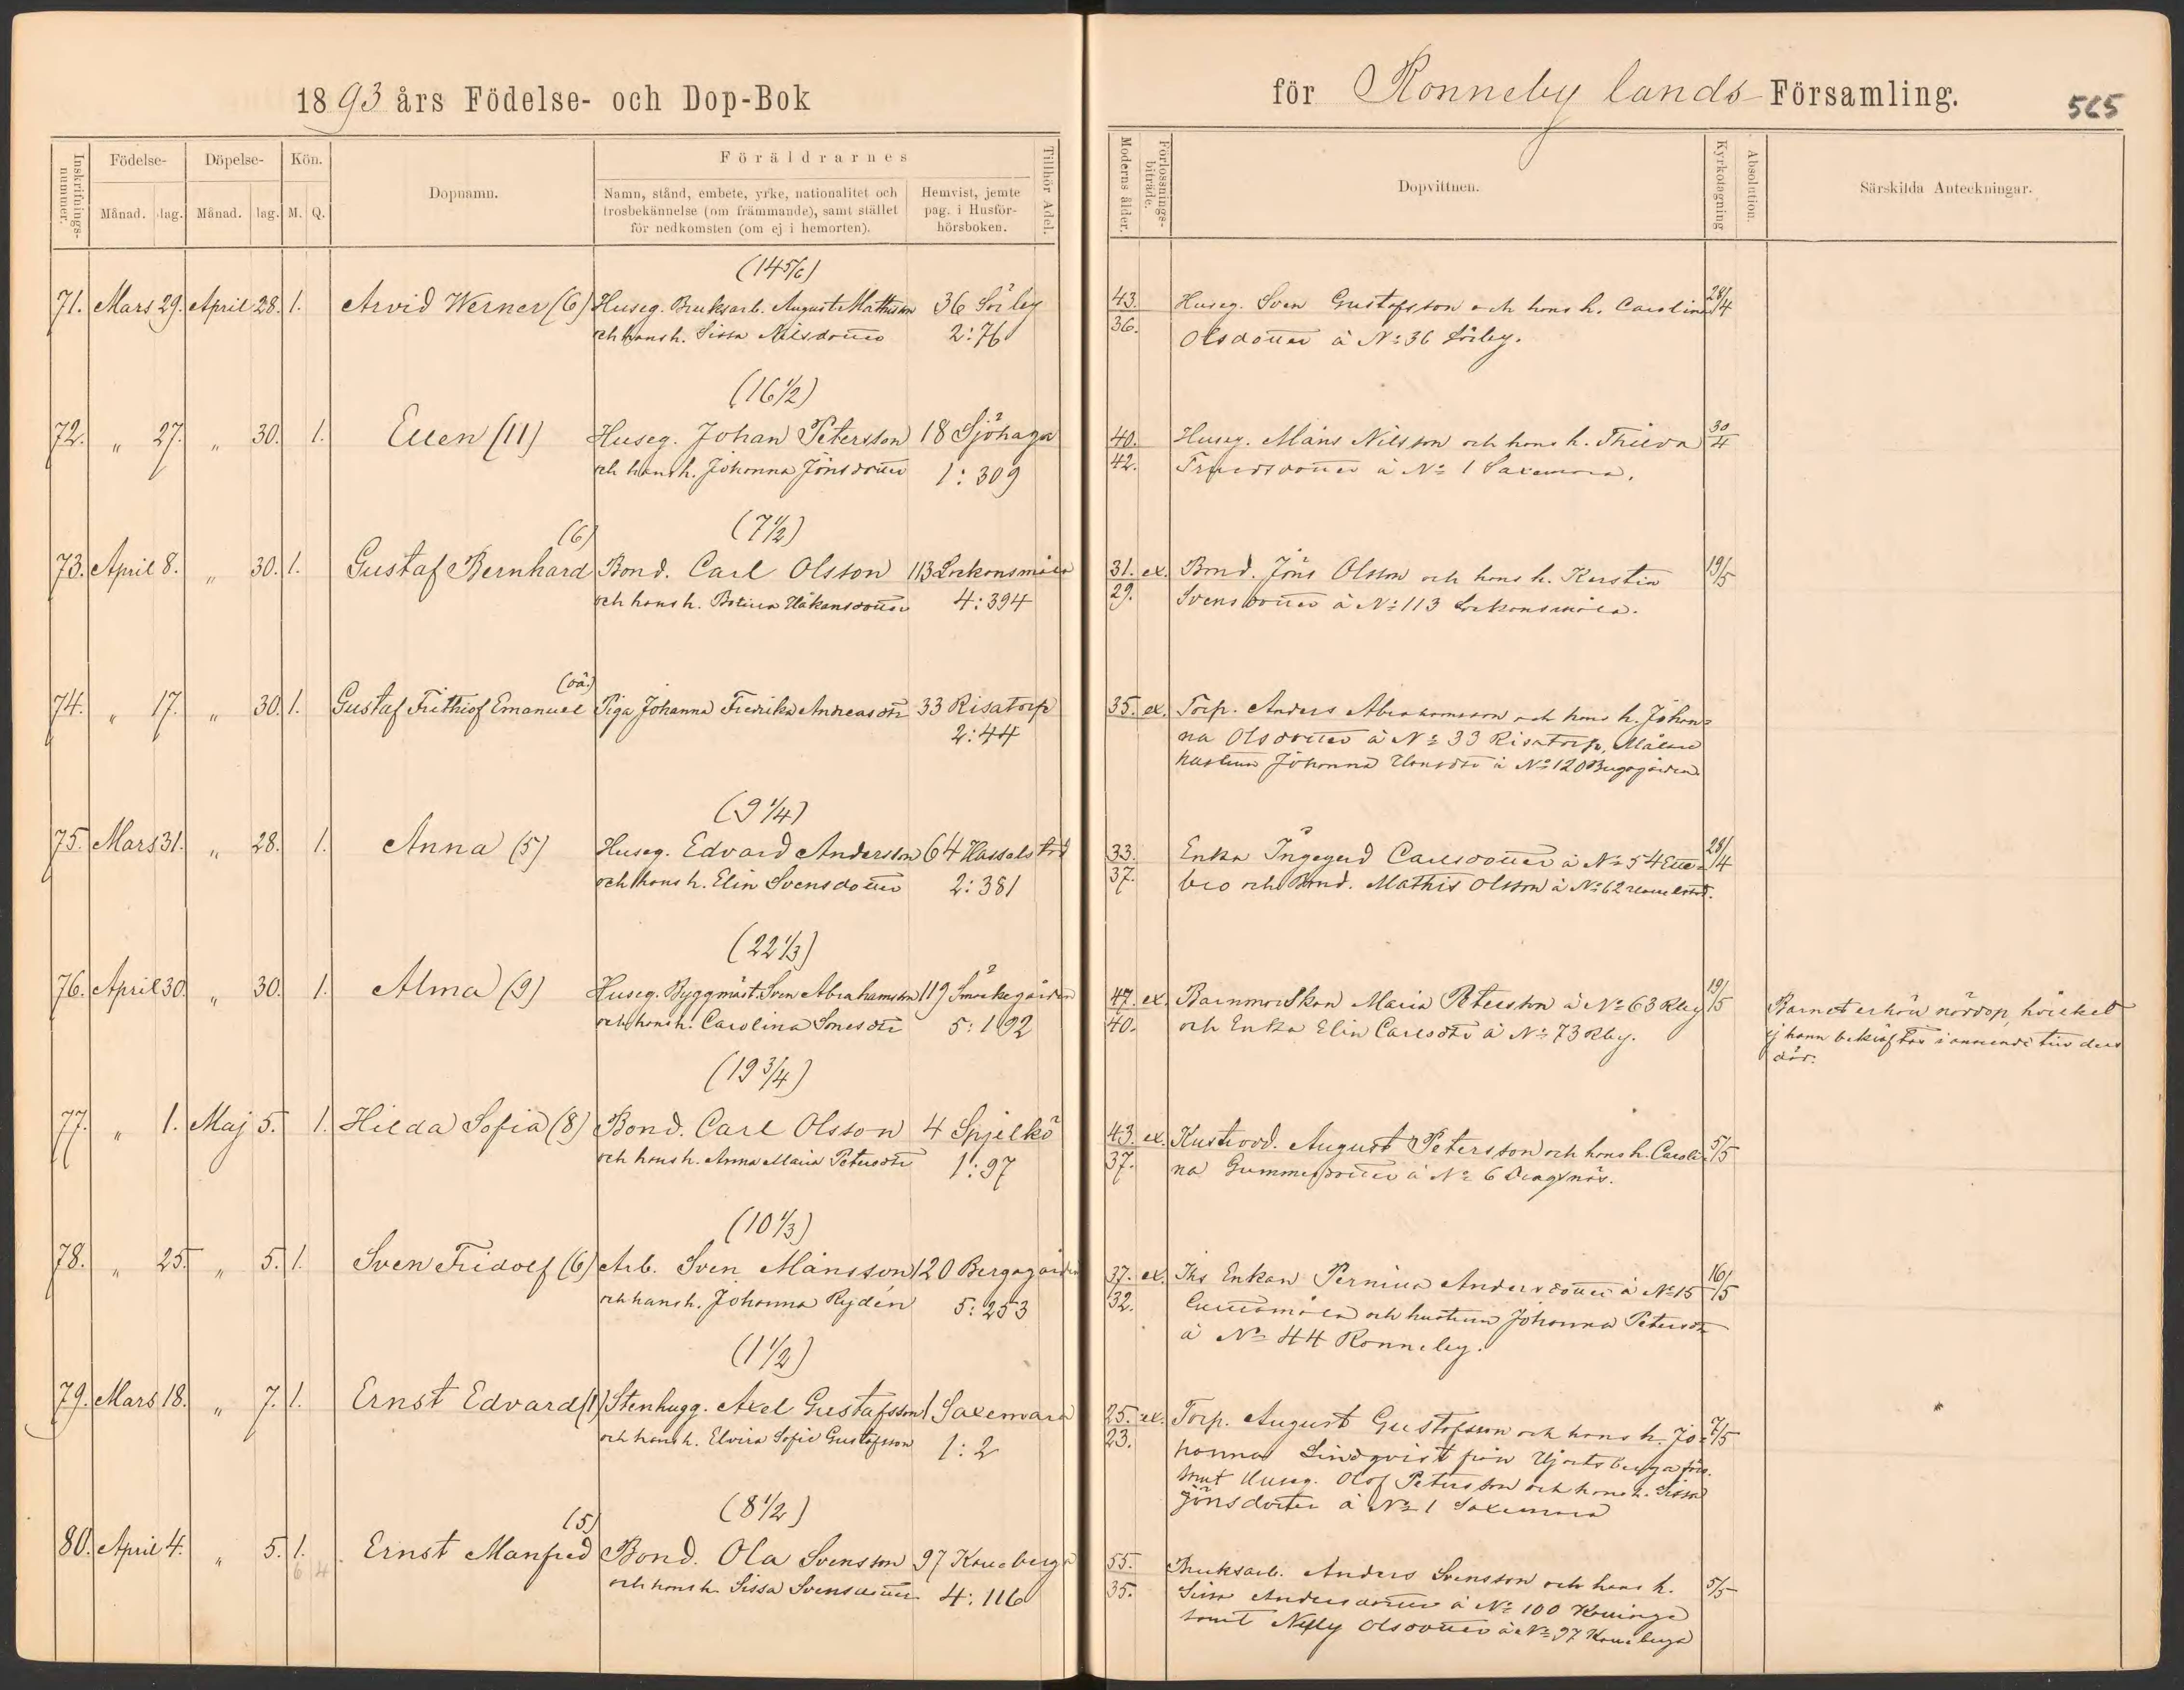 1893 års Födelse- och Dop-Bok
för Ronneby lands Församling.
565
Inskrifnings-nummer.
Födelse-
Döpelse-
Kön.
Dopnamn.
Föräldrarnes
Tillhör Adel.
Månad. dag. Månad. dag. M. Q.
Namn, stånd, embete, yrke, nationalitet och
trosbekännelse (om främmande), samt stället
för nedkomsten (om ej i hemorten).
Hemvist, jemte
pag. i Husför-
hörsboken.
Moderns ålder.
Förlossnings-biträde.
Dopvittnen.
Kyrkotagning
Absolution.
Särskilda Anteckningar.
(14 5/6)
71. Mars 29. April 28. 1. Arvid Werner (6) Huseg. Bruksarb. August Mathisson 36 Sörby
och hans h. Sissa Nilsdotter 2:76
43. Huseg. Sven Gustafsson och hans h. Carolina 28/4
36. Olsdotter å No 36 Sörby.
(16 1/2)
72. " 27. " 30. 1. Ellen (11) Huseg. Johan Petersson 18 Sjöhaga
och hans h. Johanna Jönsdotter 1:309
40. Huseg. Måns Nilsson och hans h. Thilda 30/4
42. Truedsdotter å No 1 Saxemara.
(6) (7 1/2)
73. April 8. " 30. 1. Gustaf Bernhard Bond. Carl Olsson 113 Lockansmåla
och hans h. Botilla Håkansdotter 4:394
31. ex. Bond. Jöns Olsson och hans h. Kerstin 19/5
29. Svensdotter å No 113 Lockansmåla.
(oä.)
74. " 17. " 30. 1. Gustaf Frithiof Emanuel Piga Johanna Fredrika Andreasdtr 33 Risatorp
2:44
35. ex. Torp. Anders Abrahamsson och hans h. Johan-
na Olsdotter å No 33 Risatorp, Målare
hustrun Johanna Hansdtr å No 120 Bergagården
(9 1/4)
75. Mars 31. " 28. 1. Anna (5) Huseg. Edvard Andersson 64 Hasselstad
och hans h. Elin Svensdotter 2:381
33. Enka Ingegerd Carlsdotter å No 54 Elle- 28/4
37. bro och Bond. Mathis Olsson å No 62
(22 1/3)
76. April 30. " 30. 1. Alma (9) Huseg. Byggmäst. Sven Abrahamsson 119
och hans h. Carolina Sonesdtr 5:192
47. ex. Barnmorskan Maria Petersson å No 63 Rby 19/5
40. och Enka Elin Carlsdtr å No 73 Rby.
Barnet erhöll nöddop, hvilket
ej hann bekräftas i anseende till dess
död.
(19 3/4)
77. " 1. Maj 5. 1. Hilda Sofia (8) Bond. Carl Olsson 4 Spjelkö
och hans h. Anna Maria Petersdtr 1:97
43. ex. Kustrodd. August Petersson och hans h. Caroli- 5/5
37. na Gummesdotter å No 6 Dragsnäs.
(10 1/3)
78. " 25. " 5. 1. Sven Fridolf (6) Arb. Sven Månsson 120 Bergagården
och hans h. Johanna Rydén 5:253
37. ex. Ihs Enkan Pernilla Andersdotter å No 15 16/5
32. och hustrun Johanna Petersdtr
å No 44 Ronneby.
(1 1/2)
79. Mars 18. " 7. 1. Ernst Edvard (1) Stenhugg. Axel Gustafsson 1 Saxemara
och hans h. Elvira Sofie Gustafsson 1:2
25. ex. Torp. August Gustafsson och hans h. Jo- 7/5
23. hanna Lindqvist från Hjortsberga förs.
samt Huseg. Olof Petersson och hans h. Sissa
Jönsdotter å No 1 Saxemara
(5) (8 1/2)
80. April 4. " 5. 1. Ernst Manfred Bond. Ola Svensson 97 Kalleberga
och hans h. Sissa Svensdotter 4:116
6 4
55. Bruksarb. Anders Svensson och hans h. 5/5
35. Sissa Andersdotter å No 100
samt Nelly Olsdotter å No 97 Kalleberga